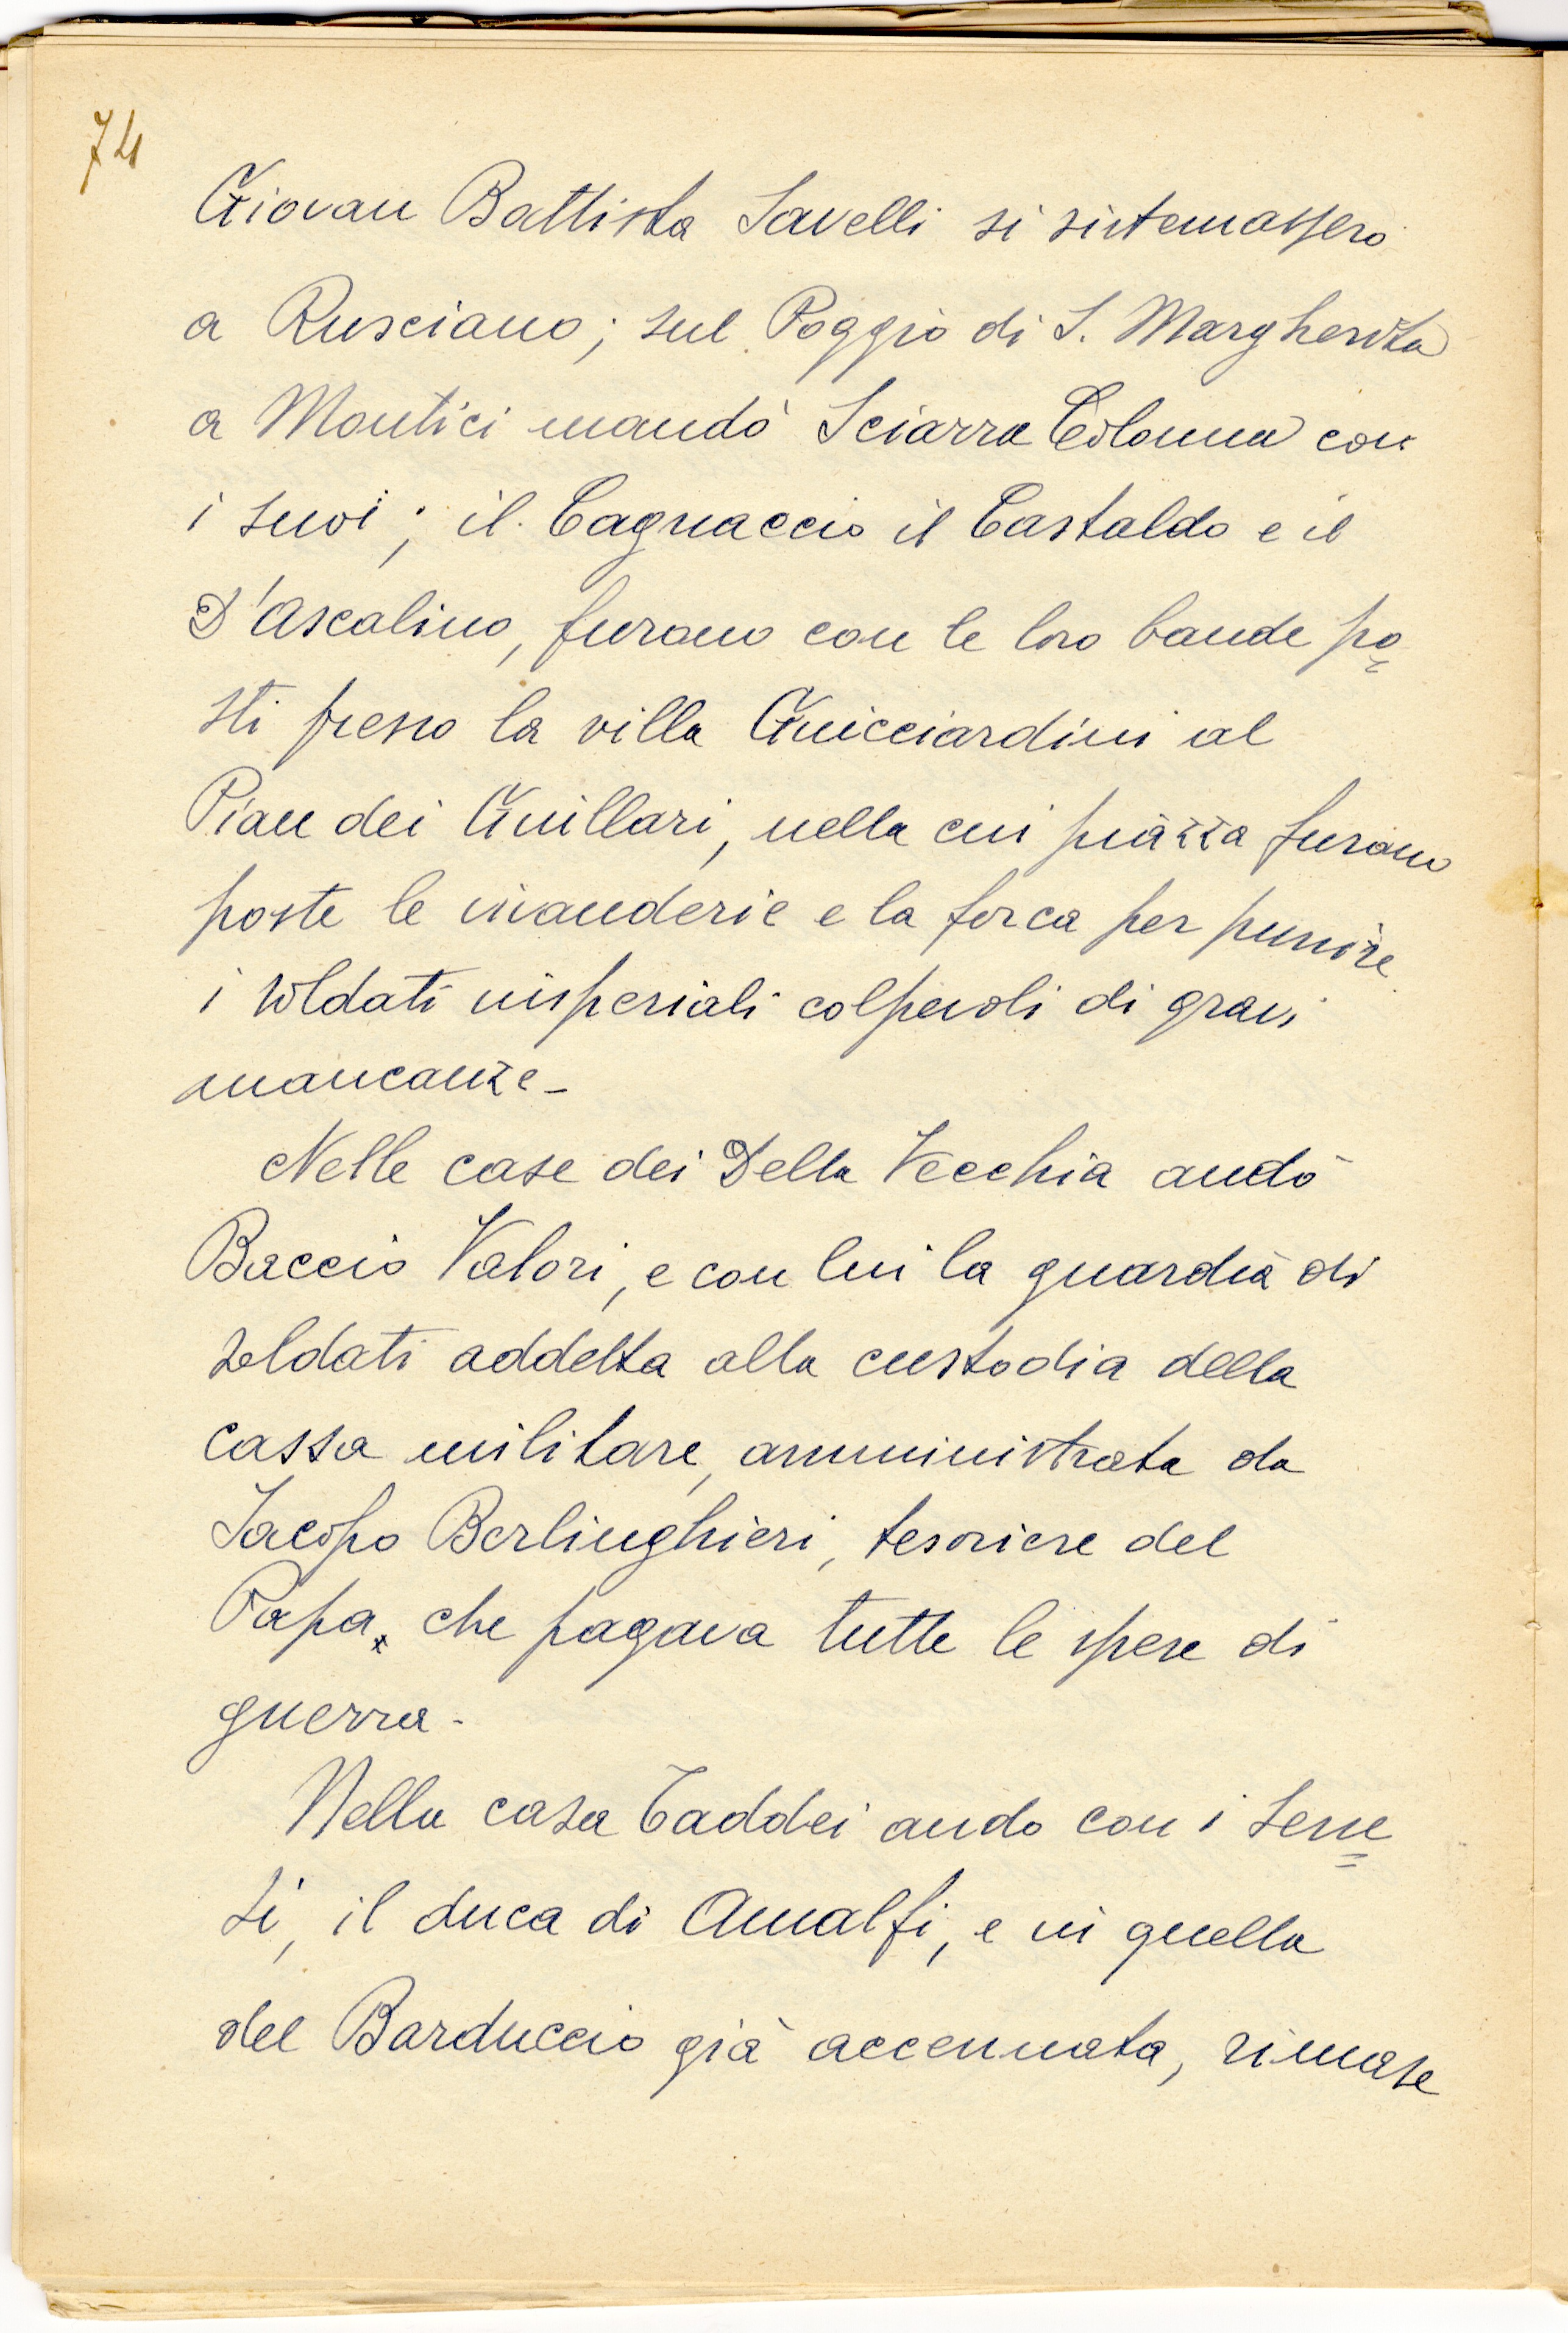 74
Giovan Battista Savelli si sistemassero
a Rusciano; sul Poggio di S. Margherita
a Montici mandò Sciarra Colonna con
i suoi; il Cagnaccio il Castaldo e il
D'Ascalino, furono con le loro bande po=
sti presso la villa Guicciardini al
Pian dei Giullari, nella cui piazza furono
poste le vivanderie e la forca per punire
i soldati imperiali colpevoli di gravi
mancanze -
Nelle case dei Della Vecchia andò
Baccio Valori, e con lui la guardia di
soldati addetta alla custodia della
cassa militare, amministrata da
Jacopo Berlinghieri, tesoriere del
Papa, che pagava tutte le spese di
guerra -
Nella casa Taddei andò con i sene=
si, il duca di Amalfi, e in quella
del Barduccio già accennata, rimase